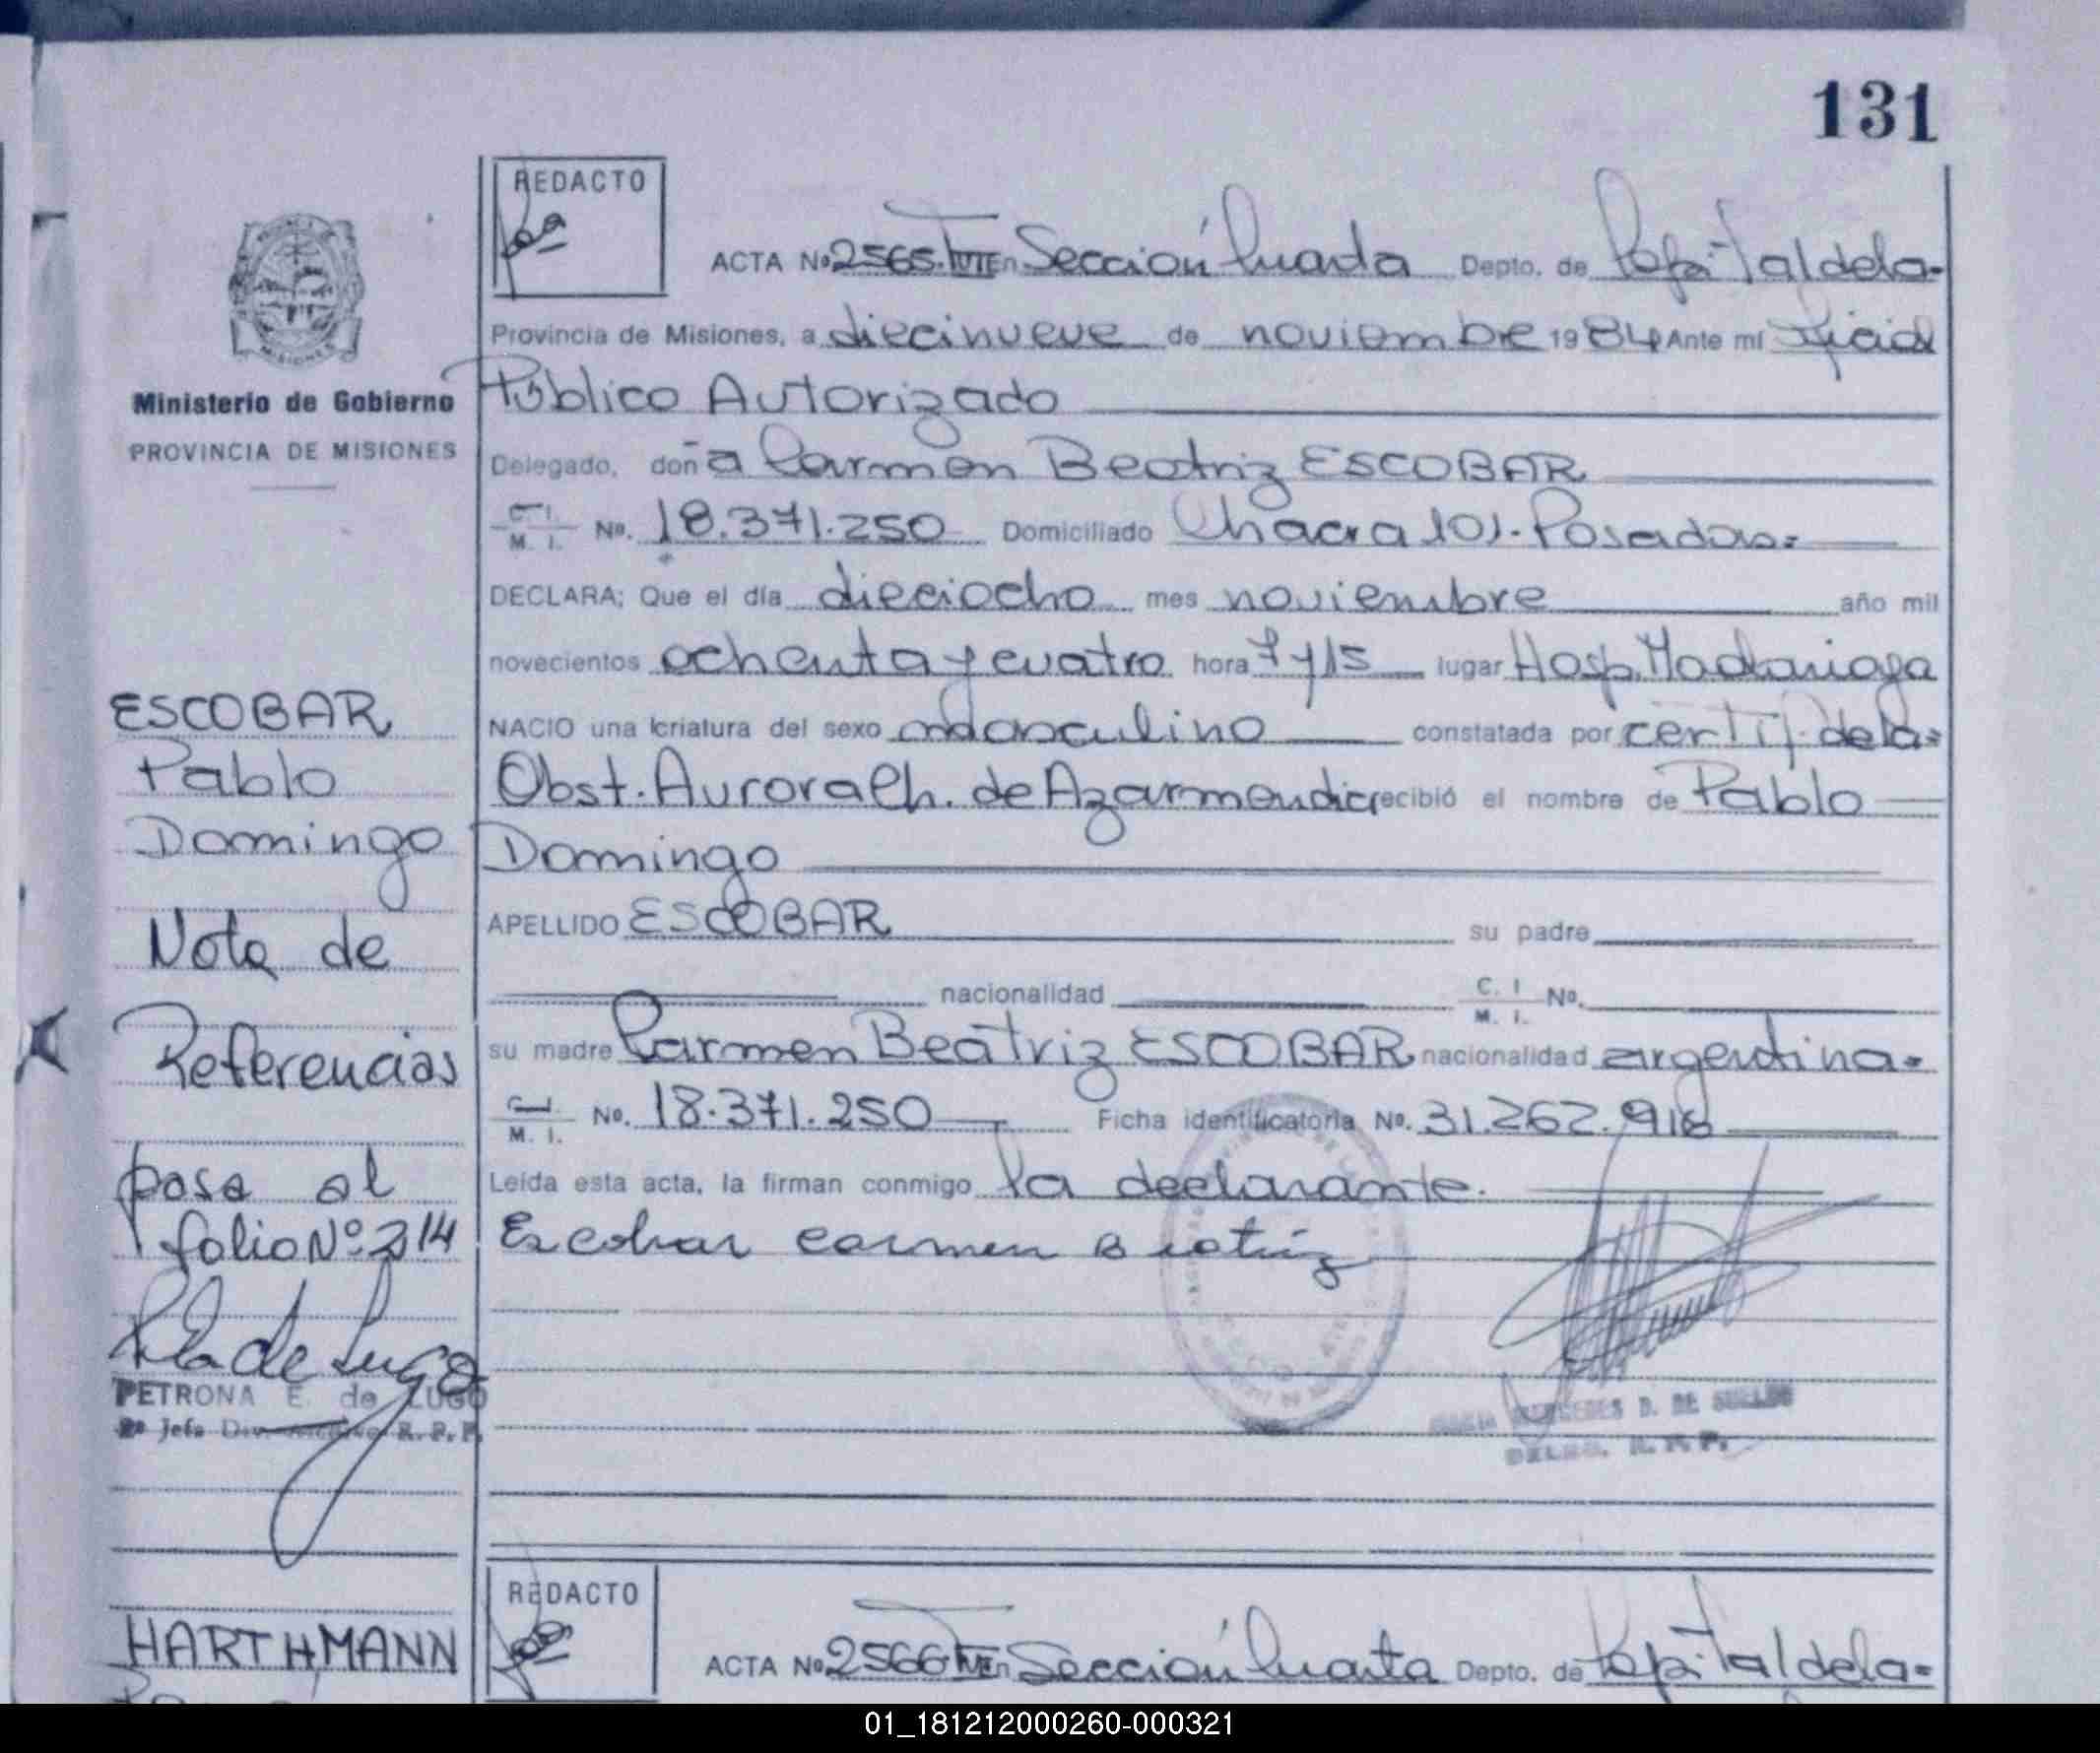 131
REDACTO
ACTA Nº 2565. En Sección Cuarta Depto. de Capital de la-
Provincia de Misiones, a diecinueve de noviembre 1984 Ante mí Oficial
Ministerio de Gobierno
PROVINCIA DE MISIONES
Público Autorizado
Delegado, don a Carmen Beatriz ESCOBAR
C. I. M. I. Nº. 18.371.250 Domiciliado Chacra 101.- Posadas.-
DECLARA; Que el día dieciocho mes noviembre año mil
novecientos ochenta y cuatro hora 7 y 15 lugar Hosp. Madariaga
NACIO una criatura del sexo masculino constatada por certif. de la-
Obst. Aurora Ch. de Azarmendia recibió el nombre de Pablo
Domingo
APELLIDO ESCOBAR su padre
nacionalidad C. I M. I. Nº.
su madre Carmen Beatriz ESCOBAR nacionalidad argentina.
C. I. M. I. Nº. 18.371.250 Ficha identificatoria Nº. 31.262.918
Leída esta acta, la firman conmigo la declarante.
Escobar carmen Beatriz
ESCOBAR
Pablo
Domingo
Nota de
Referencias
pasa al
folio Nº 214
PETRONA E. de LUGO
Jefa Div. Archivo R. P. P.
MERCEDES D. DE
DELEG. R. P. P.
HARTHMANN
REDACTO
ACTA Nº 2566 En Sección Cuarta Depto. de Capital de la-
01_181212000260-000321